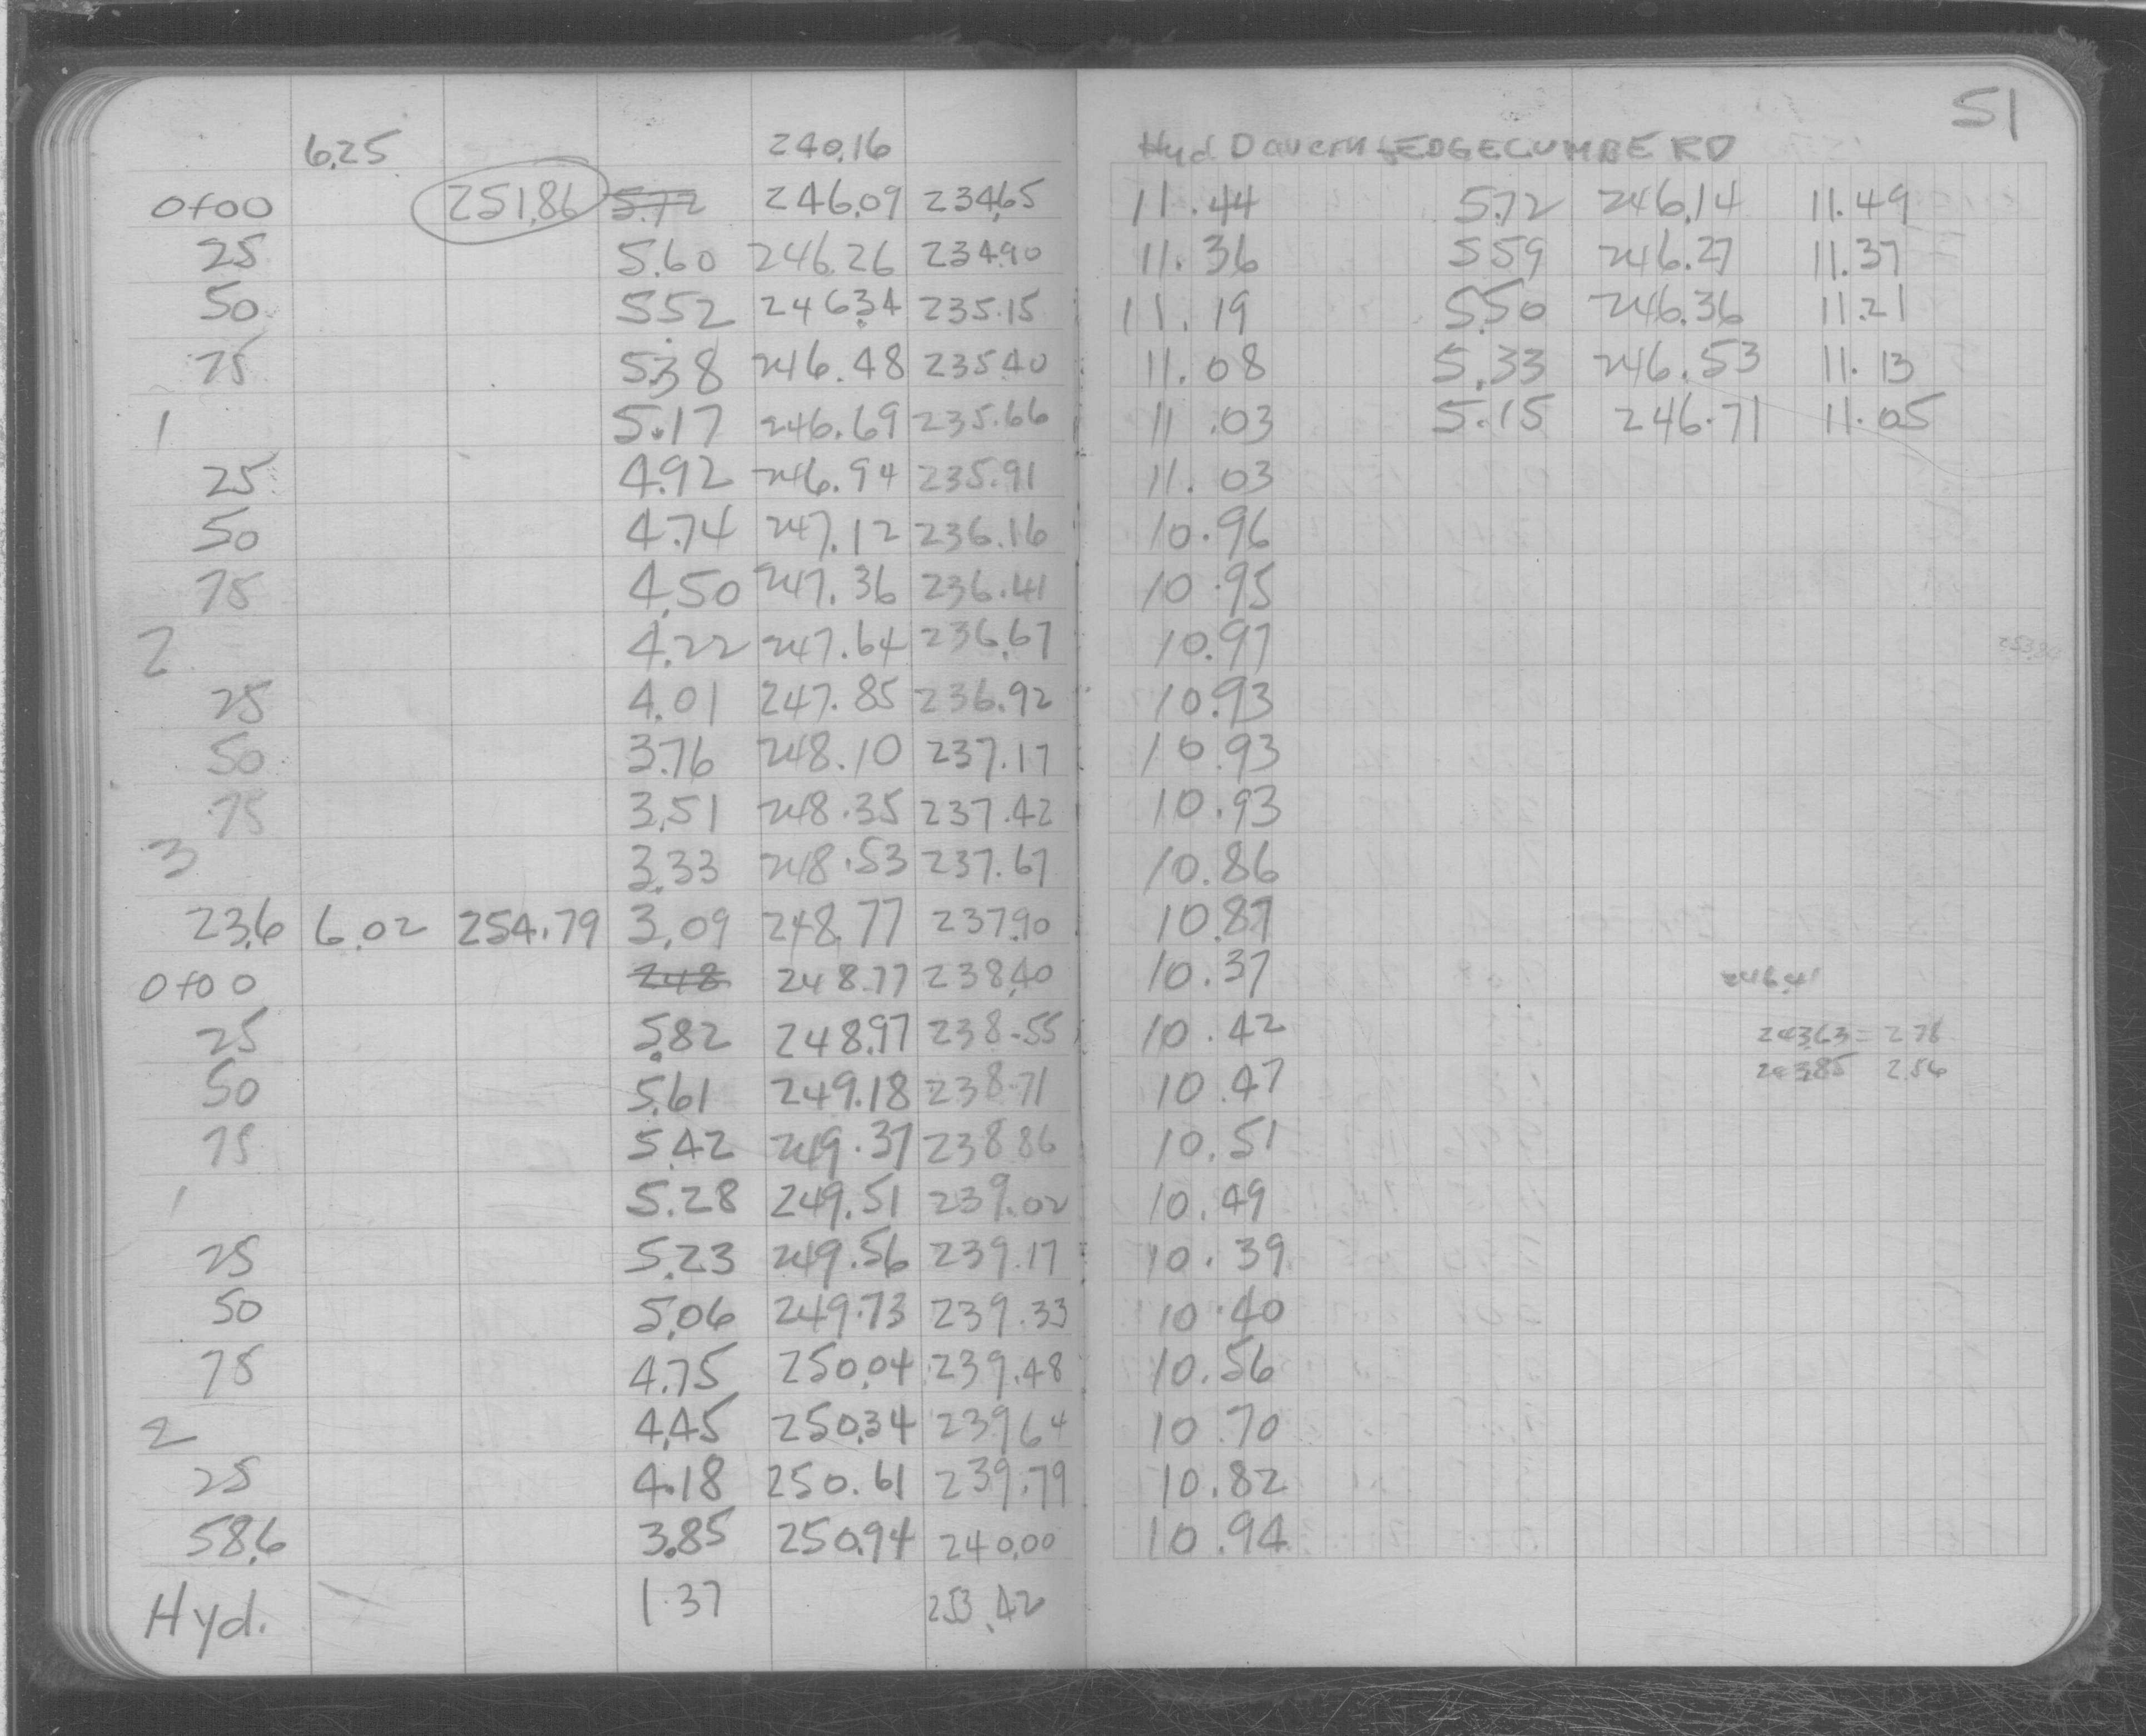 51
6.25 240.16 Hyd Davern & EDGECUMBE RD
0+00 251.86 5.72 246.09 234.65 11.44 5.72 246.14 11.49
25 5.60 246.26 234.90 11.36 5.59 246.27 11.37
50 5.52 246.34 235.15 11.19 5.50 246.36 11.21
75 5.38 246.48 235.40 11.08 5.33 246.53 11.13
1 5.17 246.69 235.66 11.03 5.15 246.71 11.05
25 4.92 246.94 235.91 11.03
50 4.74 247.12 236.16 10.96
75 4.50 247.36 236.41 10.95
2 4.22 247.64 236.67 10.97
25 4.01 247.85 236.92 10.93
50 3.76 248.10 237.17 10.93
75 3.51 248.35 237.42 10.93
3 3.33 248.53 237.67 10.86
23.6 6.02 254.79 3.09 248.77 237.90 10.87
0+00 248 248.77 238.40 10.37 246.41
25 5.82 248.97 238.55 10.42 243.63 = 2.78
50 5.61 249.18 238.71 10.47 243.85 2.56
75 5.42 249.37 238.86 10.51
1 5.28 249.51 239.02 10.49
25 5.23 249.56 239.17 10.39
50 5.06 249.73 239.33 10.40
75 4.75 250.04 239.48 10.56
2 4.45 250.34 239.64 10.70
25 4.18 250.61 239.79 10.82
58.6 3.85 250.94 240.00 10.94
Hyd. 1.37 253.42